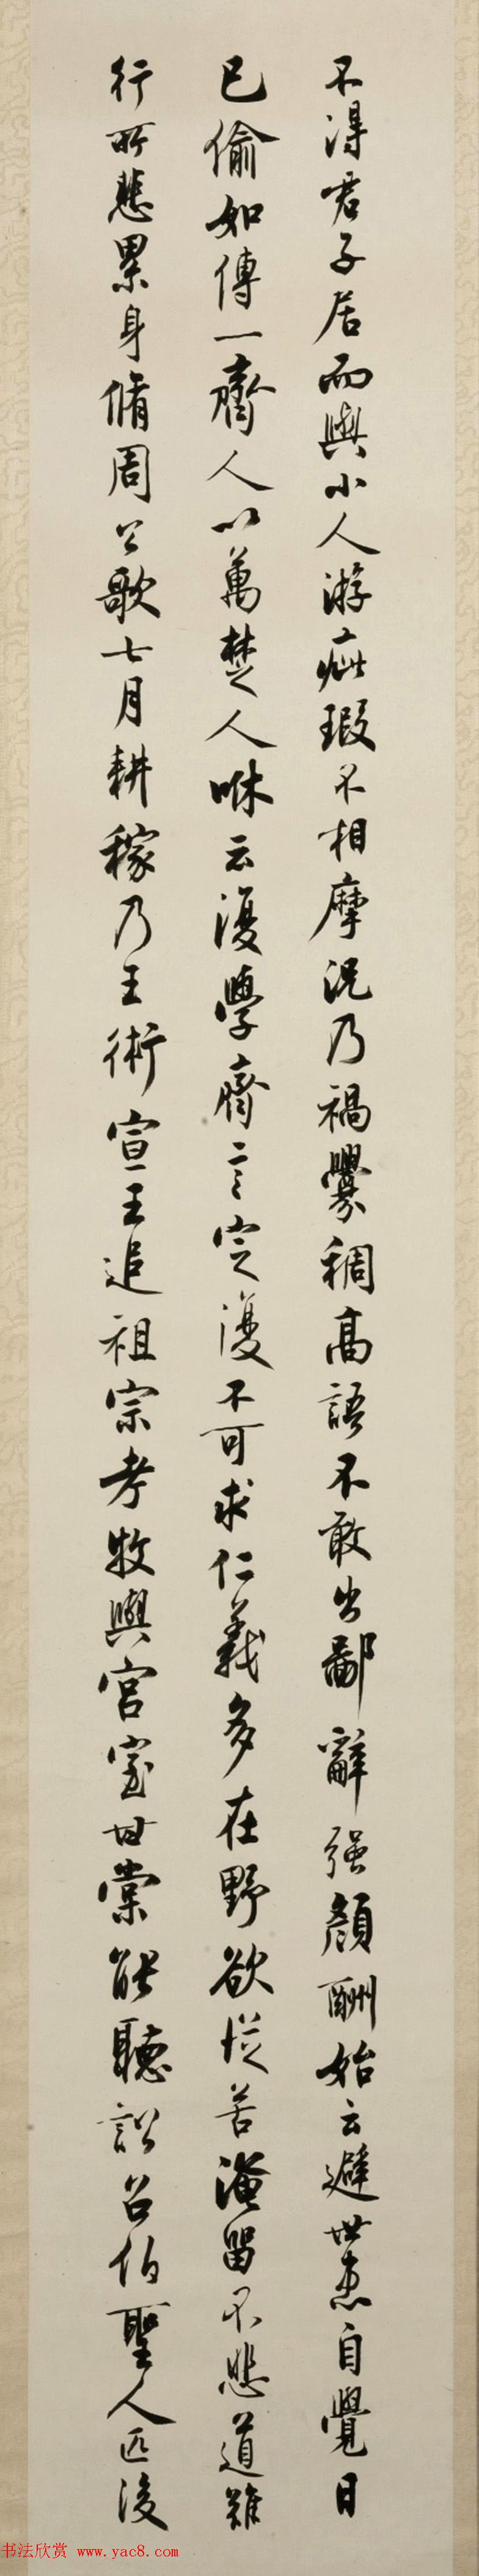 不得君子居而與小人游疵瑕不相摩況乃禍釁稠高語不敢出鄙辭强顏酬始云避世患自覺日
已偷如傅一齊人以萬楚人咻云復學齊言定復不可求仁義多在野欲從苦淹留不悲道難
行所悲累身脩周公歌七月耕稼乃王術宣王追祖宗考牧與宮室甘棠能聽訟召伯聖人匹後
书法欣赏 www.yac8.com